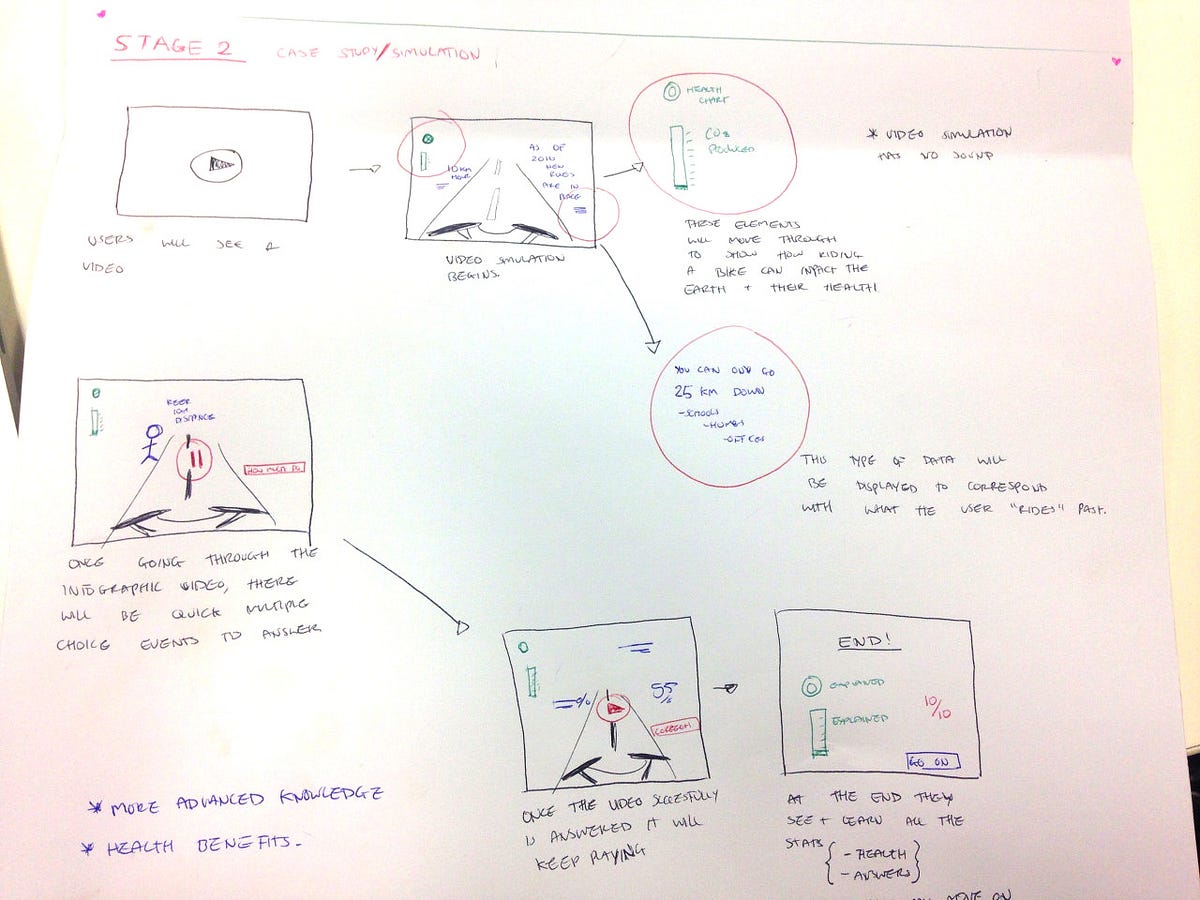 STAGE 2 CASE STUDY/SIMULATION
USERS WILL SEE A
VIDEO
10 KM
HOUR
AS OF
2010
NEW
RULES
ARE IN
PLACE
VIDEO SIMULATION
BEGINS.
HEALTH
CHART
CO2
PRODUCED
THESE ELEMENTS
WILL MOVE THROUGH
TO SHOW HOW RIDING
A BIKE CAN IMPACT THE
EARTH + THEIR HEALTH
* VIDEO SIMULATION
HAS NO SOUND
YOU CAN ONLY GO
25 KM DOWN
-SCHOOLS
-HOMES
-OFFICES
THIS TYPE OF DATA WILL
BE DISPLAYED TO CORRESPOND
WITH WHAT THE USER "RIDES" PAST.
KEEP
10M
DISTANCE
HOW MUCH
ONCE GOING THROUGH THE
INFOGRAPHIC VIDEO, THERE
WILL BE QUICK MULTIPLE
CHOICE EVENTS TO ANSWER
%
55
%
CORRECT!
ONCE THE VIDEO SUCCESFULLY
IS ANSWERED IT WILL
KEEP PLAYING
END!
EXPLAINED
EXPLAINED
10/10
GO ON
AT THE END THEY
SEE + LEARN ALL THE
STATS { - HEALTH
- ANSWERS }
MOVE ON
* MORE ADVANCED KNOWLEDGE
* HEALTH BENEFITS.